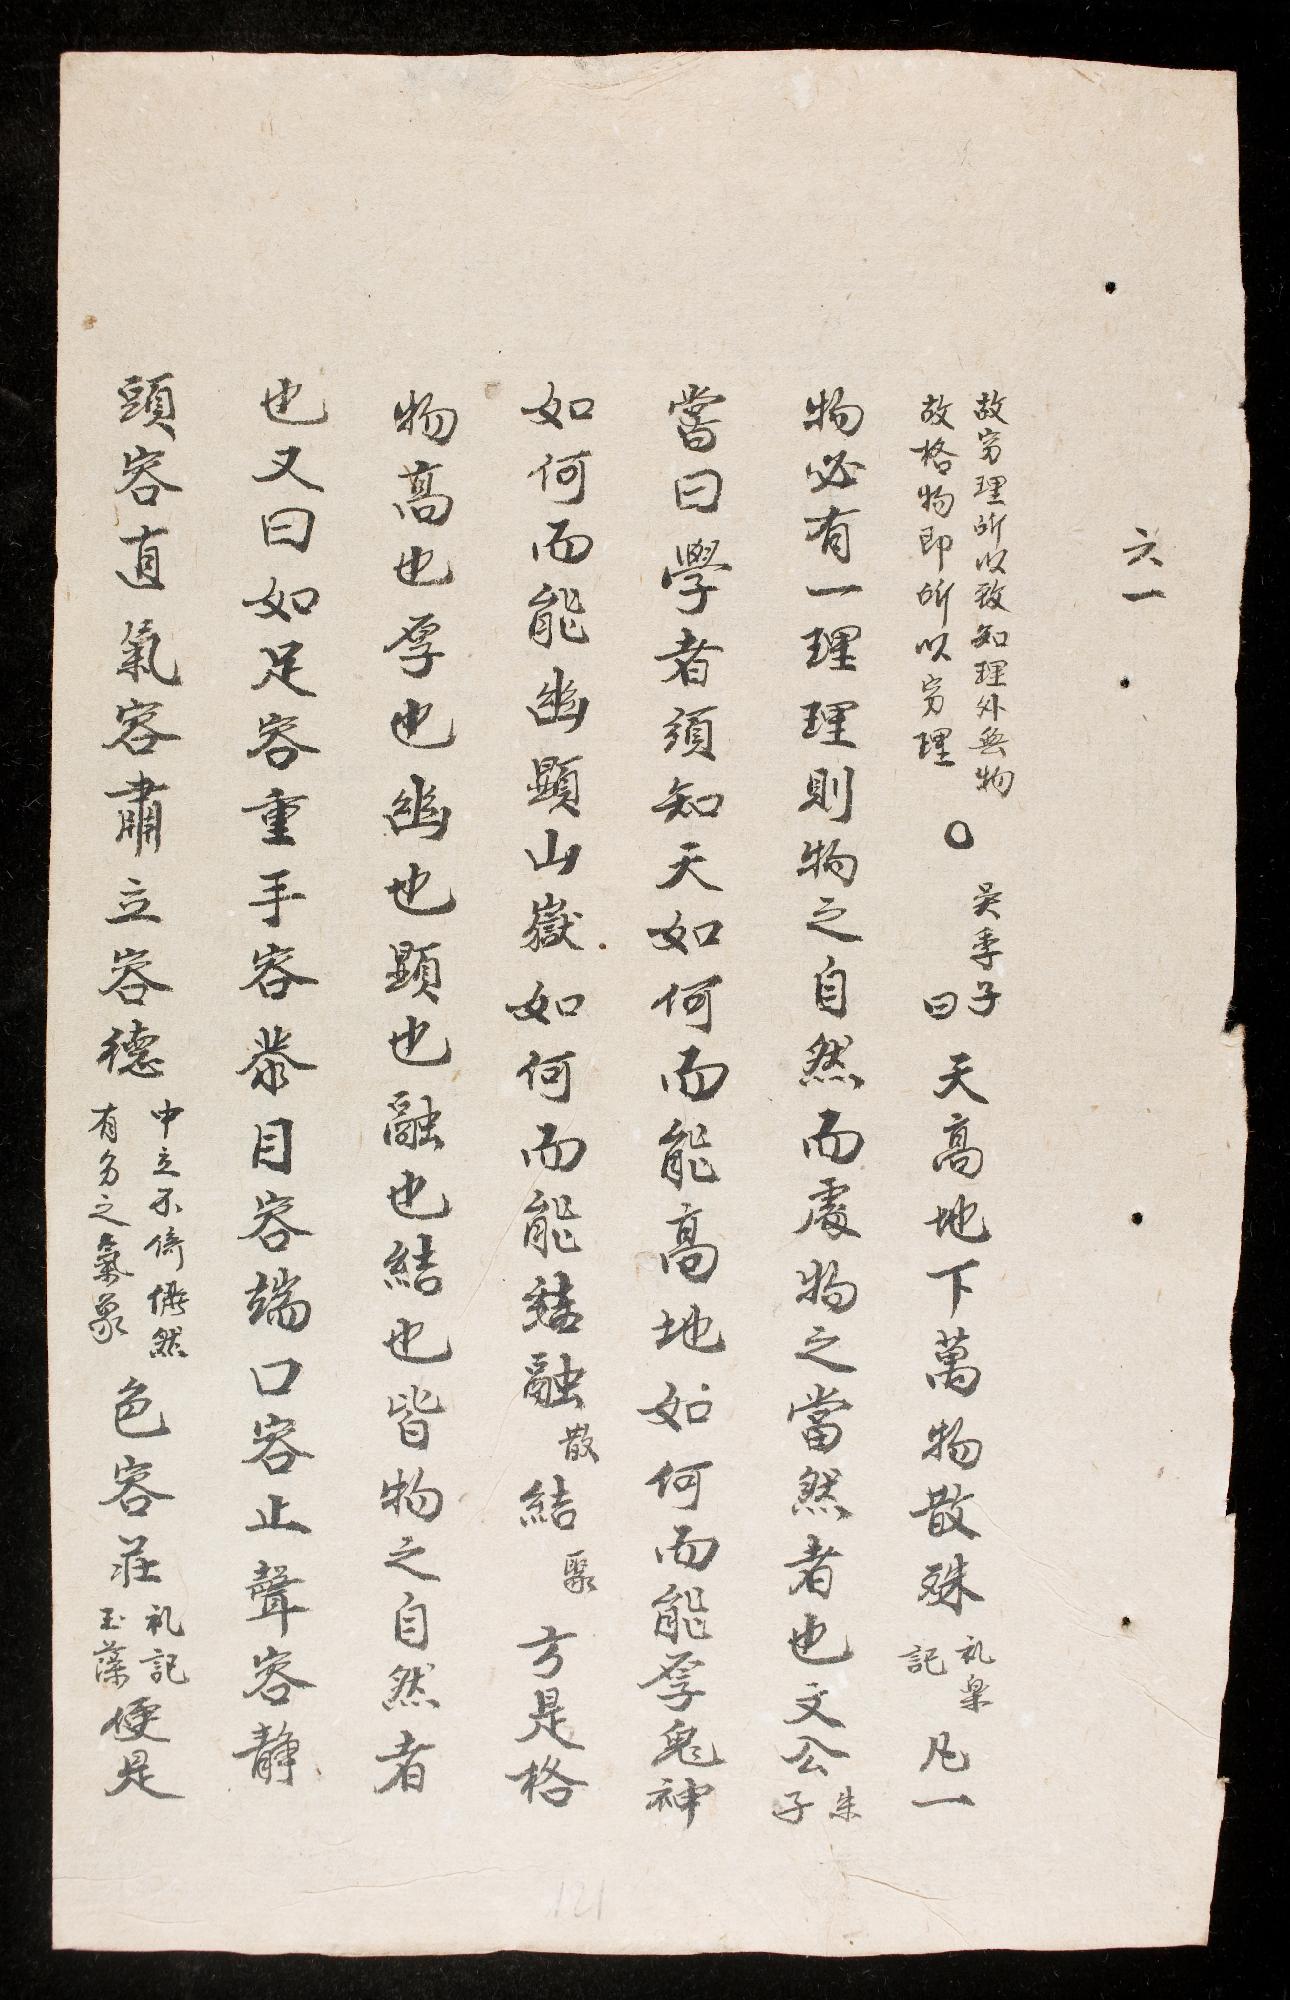 六一
故穷理所以致知理外無物
故格物即所以穷理
〇
吴季子
曰
天高地下萬物散殊
礼楽
記
凡一
物必有一理理則物之自然而處物之當然者也文公
朱
子
嘗曰學者須知天如何而能高地如何而能厚鬼神
如何而能幽顯山嶽如何而能結融
散
結
聚
方是格
物高也厚也幽也顯也融也結也皆物之自然者
也又曰如足容重手容恭目容端口容止聲容静
頭容直氣容肅立容德
中立不倚儼然
有㝵之氣象
色容莊
礼記
玉藻
便是
121